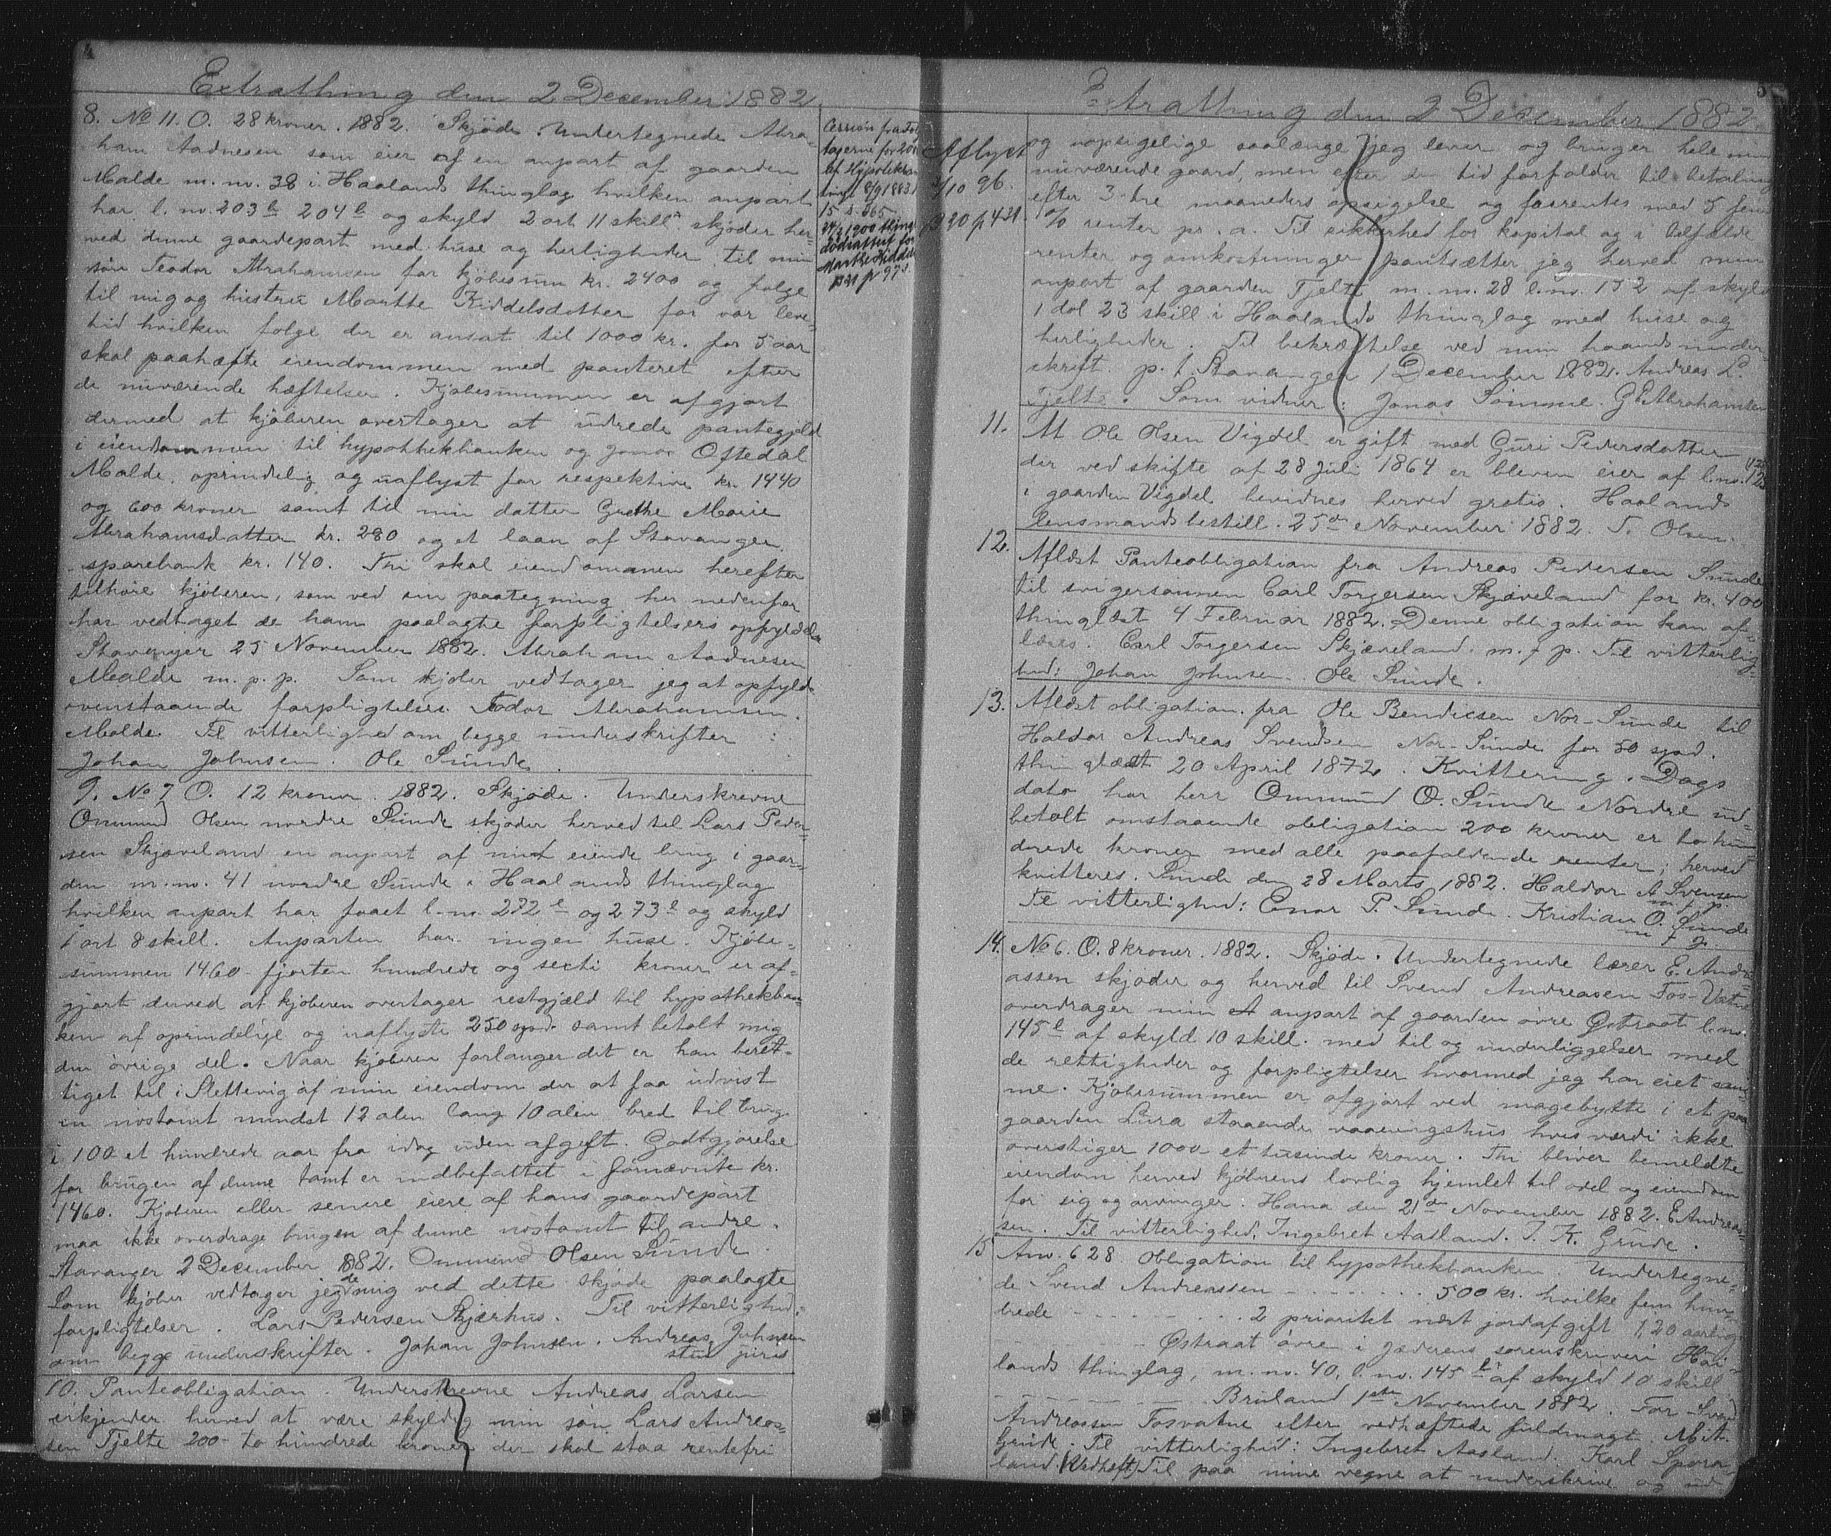 4
Extrathing den 2 December 1882.
8. No 11. O. 28 kroner. 1882. Skjöde. Undertegnede Abra-
ham Aadnesen som eier af en anpart af gaarden
Malde m. no. 38 i Haalands thinglag hvilken anpart
har l. no. 203 b 204 b og skyld 2 ort 11 skill skjöder her-
ved denne gaardepart med huse og herligheder til min
sön Teodor Abrahamsen for kjöbesum kr. 2400 og folge
til mig og hustru Marthe Kiddelsdatter for vor leve-
tid hvilken folge der er ansat til 1000 kr. for 5 aar
skal paahæfte eiendommen med panteret efter
de nuværende hæftelser. Kjöbesummen er afgjort
dermed at kjöberen overtager at udrede pantegjeld
i eiendommen til hypothekbanken og Jonas Oftedal
Malde. oprindelig og uaflyst for respektive kr. 1440
og 600 kroner samt til min datter Grethe Marie
Abrahamsdatter kr. 280 og et laan af Stavanger
sparebank kr. 140. Thi skal eiendommen herefter
tilhöre kjöberen, som ved sin paategning her nedenfor
har vedtaget de ham paalagte forpligtelsers opfyldelse
Stavanger 25 November 1882. Abraham Aadnesen
Malde m. p. p. Som kjöber vedtager jeg at opfylde
ovenstaaende forpligtelser. Teodor Abrahamsen.
Malde. Til vitterlighed om begge underskrifter:
Johan Johnsen. Ole Sunde.
Cession fra
tagerne for
af Hypotekban
tingl 8/9 1883
15 s. 365
1900 thingl
dödsattest for
Marthe Kiddels
9. No 7 O. 12 kroner. 1882. Skjöde. Underskrevne
Ommund Olsen nordre Sunde skjöder herved til Lars Peder-
sen Skjæveland en anpart af mit eiende brug i gaar-
den m. no. 41 nordre Sunde i Haalands thinglag
hvilken anpart har faaet l. no. 272 e og 273 e og skyld
1 ort 8 skill. Anparten har ingen huse. Kjöbe-
summen 1460 fjorten hundrede og sexti kroner er af-
gjort derved at kjöberen overtager restgjæld til hypothekban
ken af oprindelige og uaflyste 250 spd. samt betalt mig
den övrige del. Naar kjöberen forlanger det er han beret-
tiget til i Slettevig af min eiendom der at faa udvist
en nöstomt mindst 12 alen lang 10 alen bred til brug
i 100 et hundrede aar fra idag uden afgift. Godtgjörelse
for brugen af denne tomt er indbefattet i fornævnte kr.
1460. Kjöberen eller senere eiere af hans gaardepart
maa ikke overdrage brugen af denne nöstomt til andre.
Stavanger 2 December 1882. Ommund Olsen Sunde.
Som kjöber vedtager jeg de mig ved dette skjöde paalagte
forpligtelser. Lars Pedersen Skjærhus. Til vitterlighed
om begge underskrifter. Johan Johnsen. Andreas Johnsen
stud juris
10. Panteobligation. Underskrevne Andreas Larsen
erkjender herved at være skyldig min sön Lars Andreas-
sen Tjelte 200 to hundrede kroner der skal staa rentefri
5
Extrathing den 2 December 1882
Aflyst
3/10 96.
B 20 p 421
og uopsigelige saalænge jeg lever og bruger hele min
nuværende gaard, men efter den tid forfalder til betaling
efter 3 tre maaneders opsigelse og forrentes med 5 fem
% renter pr. a. Til sikkerhed for kapital og i tilfælde
renter og omkostninger pantsætter jeg herved min
anpart af gaarden Tjelte m. no. 28 l. no. 152 af skyld
1 dol 23 skill i Haalands thinglag med huse og
herligheder. Til bekræftelse ved min haands under-
skrift p. t. Stavanger 1 December 1882. Andreas L.
Tjelte. Som vidner: Jonas Somme. G E Abrahamsen
11. At Ole Olsen Vigdel er gift med Guri Pedersdatter
der ved skifte af 28 Juli 1864 er bleven eier af l. no.
i gaarden Vigdel bevidnes herved gratis. Haalands
lensmandsbestill. 25de November 1882. T. Olsen.
12. Aflæst Panteobligation fra Andreas Pedersen Sunde
til svigersönnen Carl Torgersen Skjæveland for kr. 400
thinglæst 4 Februar 1882. Denne obligation kan af-
læses. Carl Torgersen Skjæveland. m. f. p. Til vitterlig-
hed: Johan Johnsen. Ole Sunde.
13. Aflæst obligation fra Ole Bendicsen Nor-Sunde til
Haldor Andreas Svendsen Nor-Sunde for 50 spd.
thinglæst 20 April 1872. Kvittering. Dags
dato har herr Ommund O. Sunde Nordre ud-
betalt omstaaende obligation 200 kroner er to hun-
drede kroner med alle paafaldende renter; herved
kvitteres. Sunde den 28 Marts 1882. Haldor A Svensen
m. f. p.
Til vitterlighed: Enar P. Sunde. Kristian O. Sunde
m f p.
14. No 6. O. 8 kroner. 1882. Skjöde. Undertegnede lærer E. Andre-
assen skjöder og herved til Svend Andreasen Fos-Vatne
overdrager min A anpart af gaarden övre Östraat l. no.
145 e af skyld 10 skill. med til og underliggelser med
de rettigheder og forpligtelser hvormed jeg har eiet sam-
me. Kjöbesummen er afgjort ved magebytte i et paa
gaarden Lura staaende vaaningshus hvis værdi ikke
overstiger 1000 et tusinde kroner. Thi bliver bemeldte
eiendom herved kjöberens lovlig hjemlet til odel og eiendom
for sig og arvinger. Hana den 21de November 1882. E. Andreas-
sen. Til vitterlighed. Ingebret Aasland. T. K. Grude.
15 Anv. 628. Obligation til hypothekbanken. Undertegne-
de Svend Andreassen - - - - - - 500 kr. hvilke fem hun-
drede - - - - - - 2 prioritet næst jordafgift 1,20 aarlig
- - - - - Östraat övre i Jæderens sorenskriveri Haa-
lands thinglag, m. no. 40, l. no. 145 af skyld 10 skill
- - - - - - Bruland 1ste November 1882. For Svend
Andreassen Fosvatne efter vedhæftede fuldmagt. M. A.
Grude. Til vitterlighed: Ingebret Aasland. Karl Spora-
land (Vedheft) Til paa mine vegne at underskrive og ud-